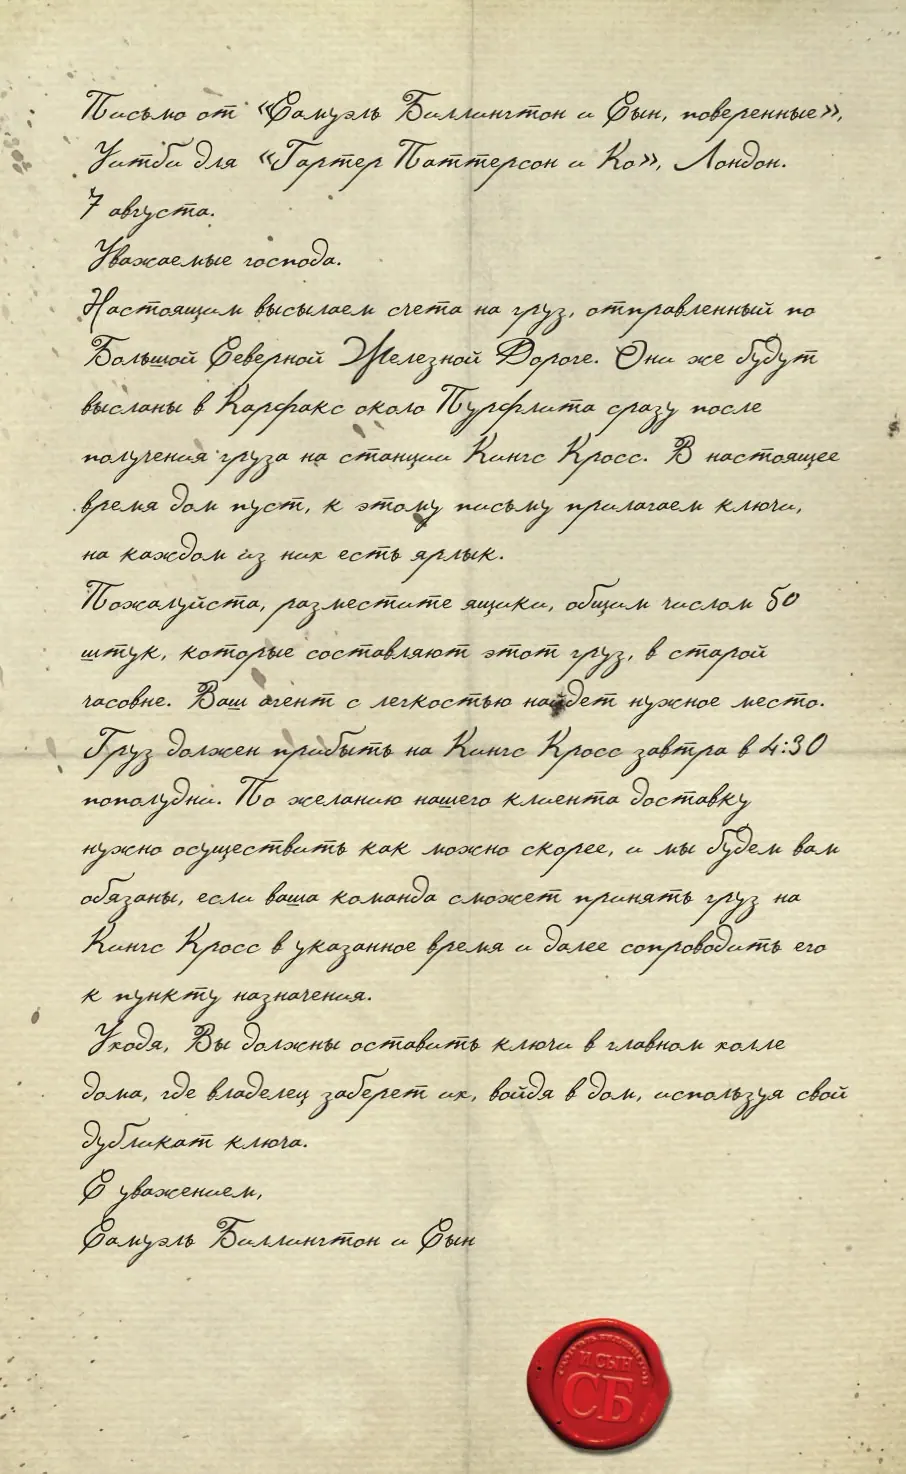 Письмо от «Самуэль Биллингтон и Сын, поверенные»,
Уитби для «Гартер Паттерсон и Ко», Лондон.
7 августа.
Уважаемые господа.
Настоящим высылаем счета на груз, отправленный по
Большой Северной Железной Дороге. Они же будут
высланы в Карфакс около Пурфлита сразу после
получения груза на станции Кингс Кросс. В настоящее
время дом пуст, к этому письму прилагаем ключи,
на каждом из них есть ярлык.
Пожалуйста, разместите ящики, общим числом 50
штук, которые составляют этот груз, в старой
часовне. Ваш агент с легкостью найдет нужное место.
Груз должен прибыть на Кингс Кросс завтра в 4:30
пополудни. По желанию нашего клиента доставку
нужно осуществить как можно скорее, и мы будем вам
обязаны, если ваша команда сможет принять груз на
Кингс Кросс в указанное время и далее сопроводить его
к пункту назначения.
Уходя, Вы должны оставить ключи в главном холле
дома, где владелец заберет их, войдя в дом, используя свой
дубликат ключа.
С уважением,
Самуэль Биллингтон и Сын
И СЫН
СБ